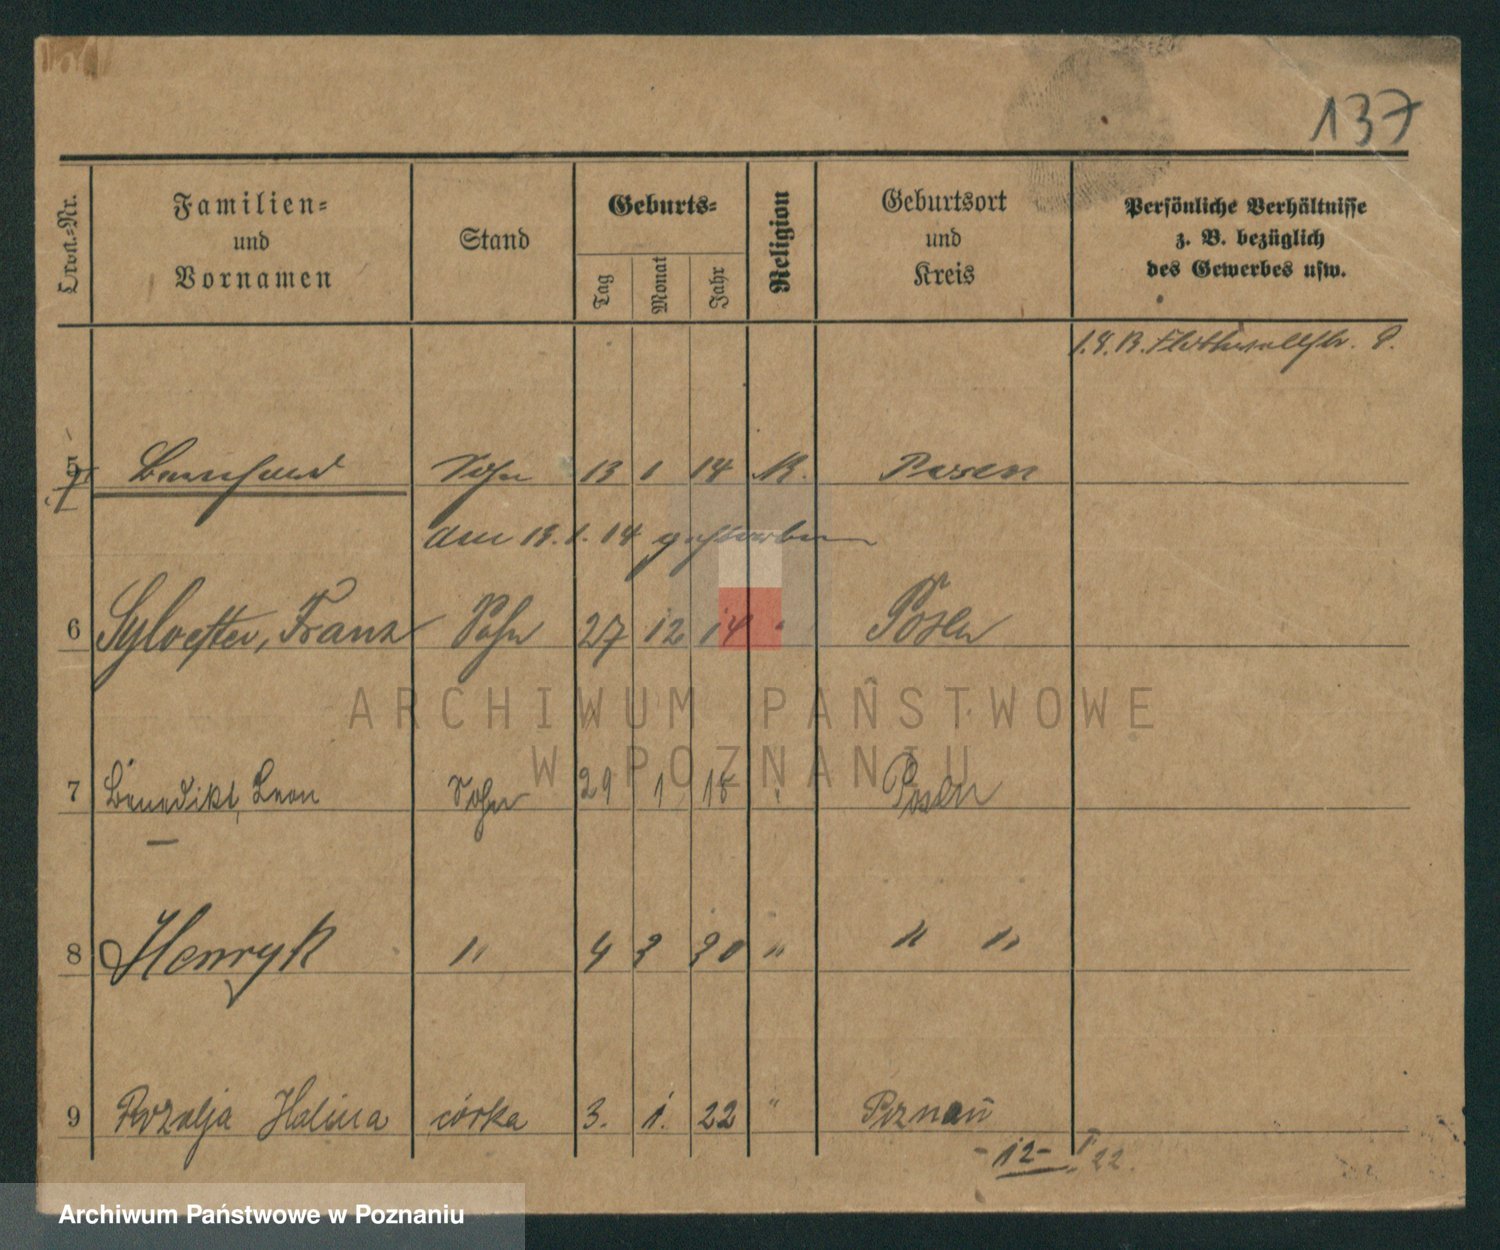 137
Lwd.-Nr.
Familien-
und
Vornamen
Stand
Geburts-
Tag
Monat
Jahr
Religion
Geburtsort
und
Kreis
Persönliche Verhältnisse
z. B. bezüglich
des Gewerbes usw.
5 Bernhard Sohn 13 1 14 K. Posen
den 18. 1. 14 gestorben
6 Sylvester, Franz Sohn 27 12 14 " Posen
7 Benedikt, Leon Sohn 29 1 18 " Posen
8 Henryk " 4 3 20 " " "
9 Rozalja Halina córka 3. 1. 22 " Poznań
-12- I 22.
ARCHIWUM PAŃSTWOWE
W POZNANIU
Archiwum Państwowe w Poznaniu